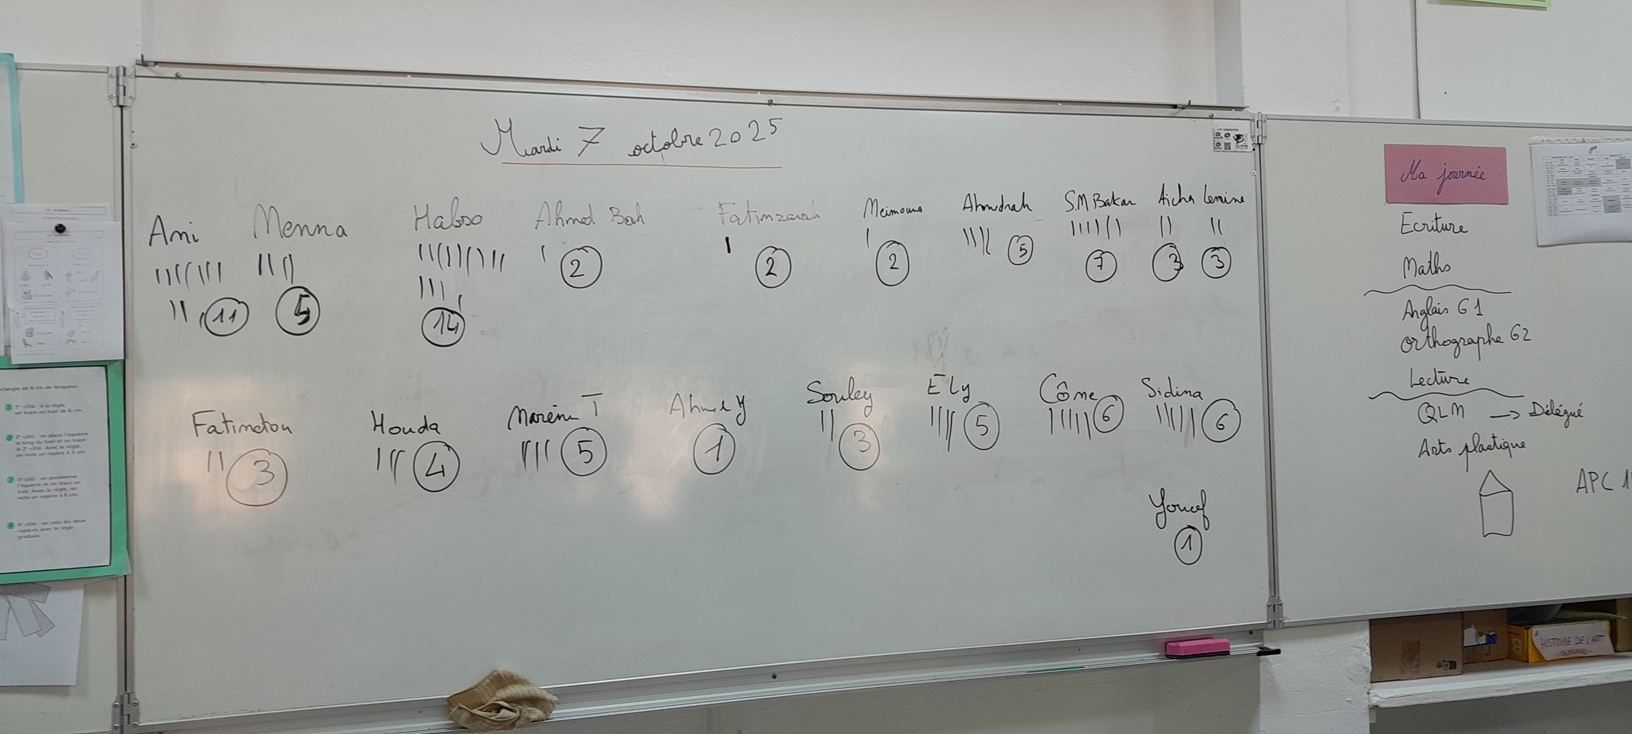 Mardi 7 octobre 2025
Ani Menna Habso Ahmed Bah Fatimzarah Meimouna Ahmedrah S.M Bakar Aicha Lemine
11 5 14 2 2 2 5 7 3 3
Fatimetou Houda Marème T Ahmed Y Souley Ely Côme Sidina
3 4 5 1 3 5 6 6
Youcef
1
Ma journée
Ecriture
Maths
Anglais G1
orthographe G2
Lecture
QLM → Délégué
Arts plastique
APC
HISTOIRE DE L'ART